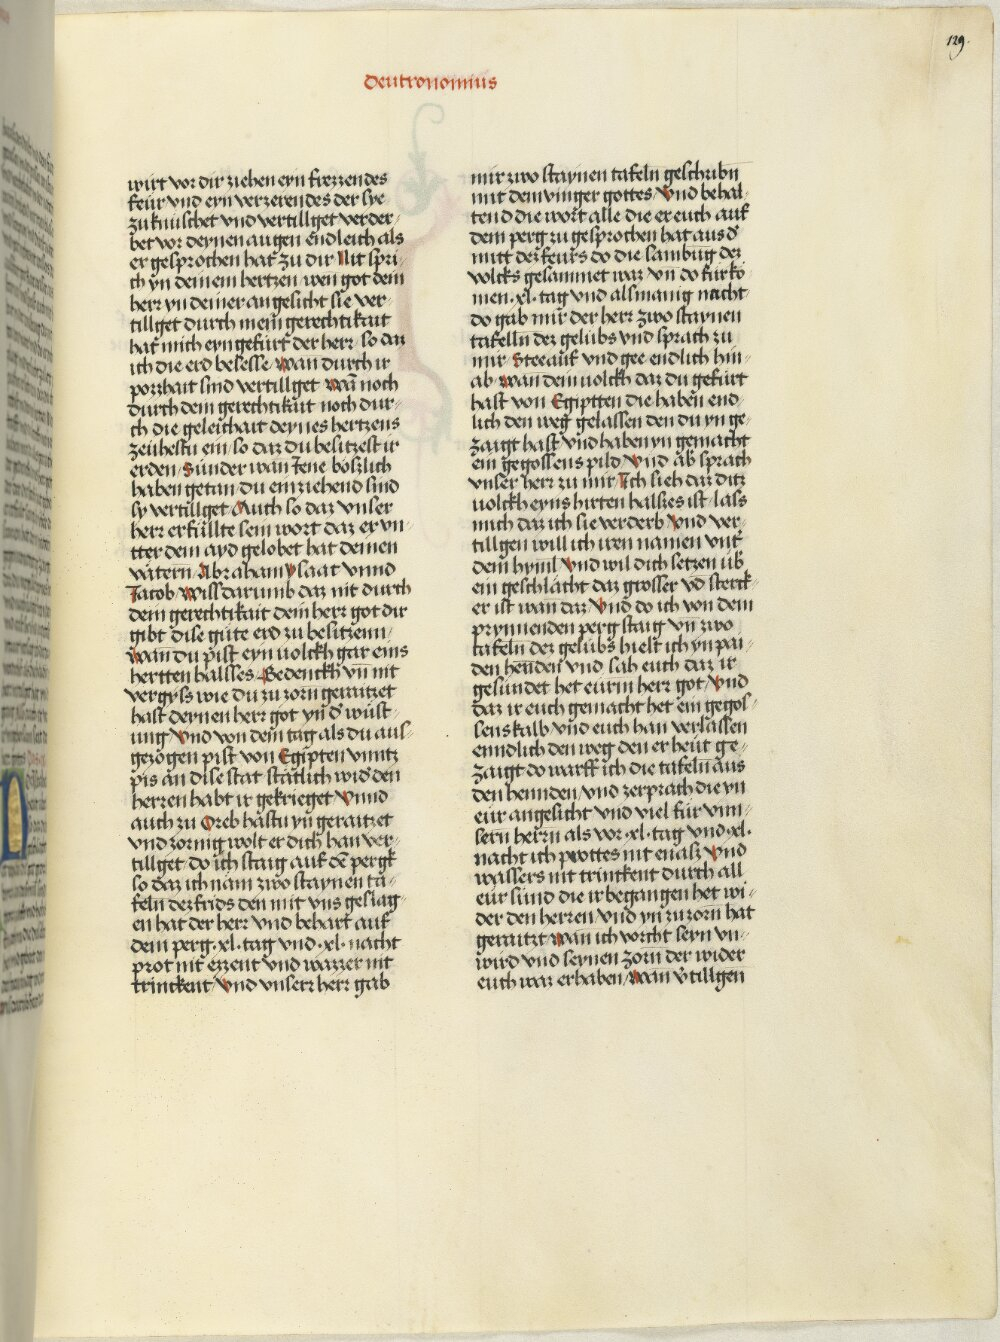 129.
deutronomius
wirt vor dir ziehen eyn frezzendes
feür vnd eyn verzerendes der sye
zuknüschet vnd vertillget verder⸗
bet vor deynen augen Endleich als
er gesprochen hat zu dir Nit spri⸗
ch yn deinem hertzen wen got dein
herr yn deiner angesicht sie ver⸗
tillget durch mein gerechtikait
hat mich eyngefürt der herr so daz
ich die erd besesse wan durch ir
pozzhait sind vertillget wañ noch
durch dein gerechtikait noch dur⸗
ch die geleichait deynes hertzens
zeühestu ein so daz du besitzest ir
erden Sunder wan Jene böszlich
haben getan du einziehend sind
sy vertillget Auch so daz vnser
herr erfüllte sein wort daz er vn⸗
tter dem ayd gelobet hat deinen
vätern Abraham ysaat vnnd
Jacob Wiss darumb daz nit durch
dein gerechtikait dein herr got dir
gibt dise güte erd zu besitzenn
wan du pist eyn uolckh gar eins
hertten hallses Bedenckh vñ nit
vergyss wie du zu zorn geraitzet
hast deynen herr got yñ d̕ wüst⸗
ung Vnd von dem tag als du aus⸗
gezogen pist von Egipten vnntz
pis an dise stat stätlich wid̕ den
herren habt ir gekrieget Vnnd
auch zu Oreb hastu yñ geraitzet
vnd zornig wolt er dich han ver⸗
tillget do ich staig auf dē pergk
so daz ich nam zwo staynen ta⸗
feln dez frids den mit vns geslag⸗
en hat der herr vnd behart auf
dem perg .xl. tag vnd .xl. nacht
prot nit ezzent vnd wazzer nit
trinckent Vnd vnserr herr gab
mir zwo staynen tafeln geschribñ
mit dem vinger gottes Vnd behal⸗
tend die wort alle die er euch auf
dem perg zu gesprochen hat aus d̕
mitt dez feürs do die sambūg dez
volcks gesammet waz vñ do fürkō
men .xl. tag vnd als manig nacht
do gab mir der herr zwo staynen
tafelln dez gelübs vnd sprach zu
mir Stee auf vnd gee endlich hin⸗
ab wan dein uolckh daz du gefürt
hast von Egiptten die haben end⸗
lich den weg gelassen den du yn ge⸗
zaigt hast vnd haben yn gemacht
ein gegossens pild Vnd ab sprach
vnser herr zu mir Ich sieh daz ditz
uolckh eyns hirten hallses ist lass
mich daz ich sie verderb Vnd ver⸗
tillgen will ich iren namen vnt̕
dem hyml Vnd wil dich setzen üb̕
ein geschlächt daz grosser vñ sterck⸗
er ist wan daz Vnd do ich von dem
prynnenden perg staig vñ zwo
tafeln dez gelübs hielt ich yn pai⸗
den henden vnd sah euch daz ir
gesündet het eürm herr got Vnd
daz ir euch gemacht het ein gegos⸗
sens kalb vnd euch han verlassen
enndlich den weg den er heüt ge⸗
zaigt do warff ich die tafeln aus
den hennden vnd zerprach die yn
eür angesicht vnd viel für vnn⸗
sern herrn als vor .xl. tag vnd .xl.
nacht ich prottes nit enasz Vnd
wassers nit trinckent durch all
eür sünd die ir begangen het wi⸗
der den herren vnd yn zu zorn hat
geraitzt wan ich vorcht seyn vn⸗
wird vnd seynen zorn der wider
euch waz erhaben Wan v̕tillgen